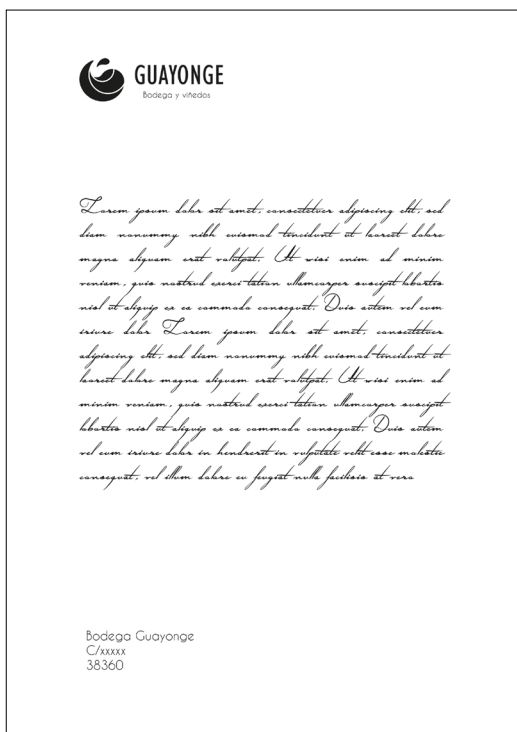 GUAYONGE
Bodega y viñedos
Lorem ipsum dolor sit amet, consectetuer adipiscing elit, sed
diam nonummy nibh euismod tincidunt ut laoreet dolore
magna aliquam erat volutpat. Ut wisi enim ad minim
veniam, quis nostrud exerci tation ullamcorper suscipit lobortis
nisl ut aliquip ex ea commodo consequat. Duis autem vel eum
iriure dolor Lorem ipsum dolor sit amet, consectetuer
adipiscing elit, sed diam nonummy nibh euismod tincidunt ut
laoreet dolore magna aliquam erat volutpat. Ut wisi enim ad
minim veniam, quis nostrud exerci tation ullamcorper suscipit
lobortis nisl ut aliquip ex ea commodo consequat. Duis autem
vel eum iriure dolor in hendrerit in vulputate velit esse molestie
consequat, vel illum dolore eu feugiat nulla facilisis at vero
Bodega Guayonge
C/xxxxx
38360